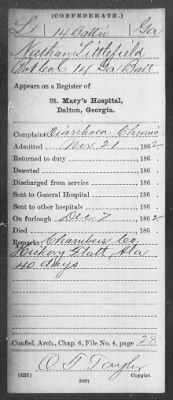 (CONFEDERATE.)
L 14 Batt'n Ga
Nathan Littlefield
14 Ga Batt
Appears on a Register of
St. Mary's Hospital,
Dalton, Georgia.
Complaint Diarrhoea Chronic
Admitted Nov. 21, 1862
Returned to duty, 186
Deserted, 186
Discharged from service, 186
Sent to General Hospital, 186
Sent to other hospitals, 186
On furlough Dec 7, 1862
Died, 186
Remarks: Chambers Co.
Hickory Flatt Ala
40 days
Confed. Arch., Chap. 6, File No. 4, page 23
(635)
Copyist.